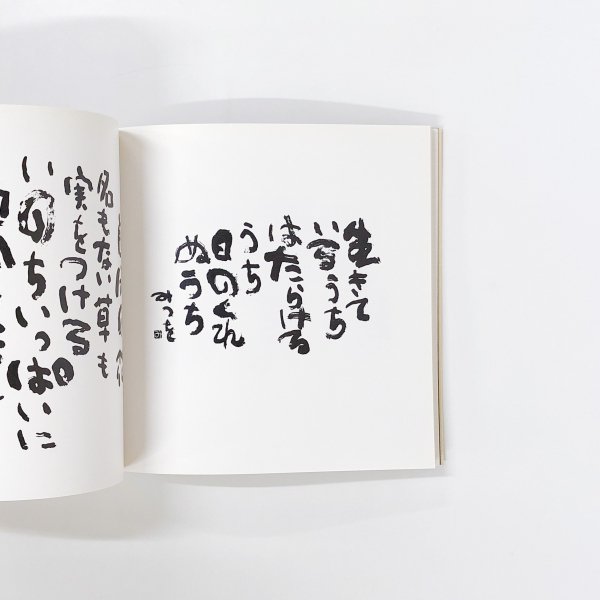 生きて
いるうち
はたらける
うち
日のくれ
ぬうち
みつを
名もない草も
実をつける
いのちいっぱいに